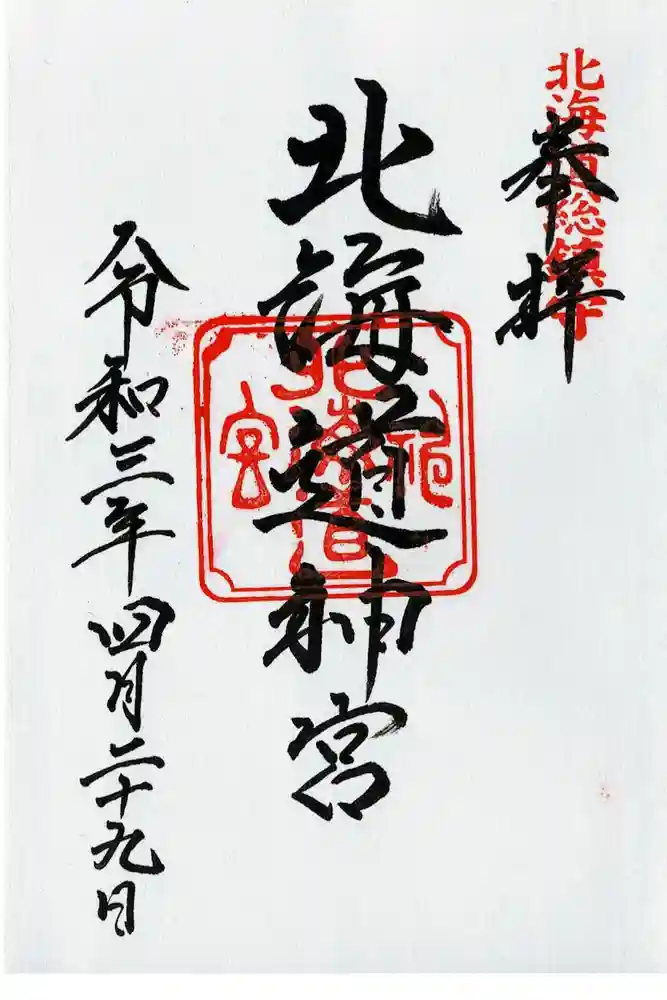 北海道総鎮守
奉拝
北海道神宮
北海道神宮
令和三年四月二十九日